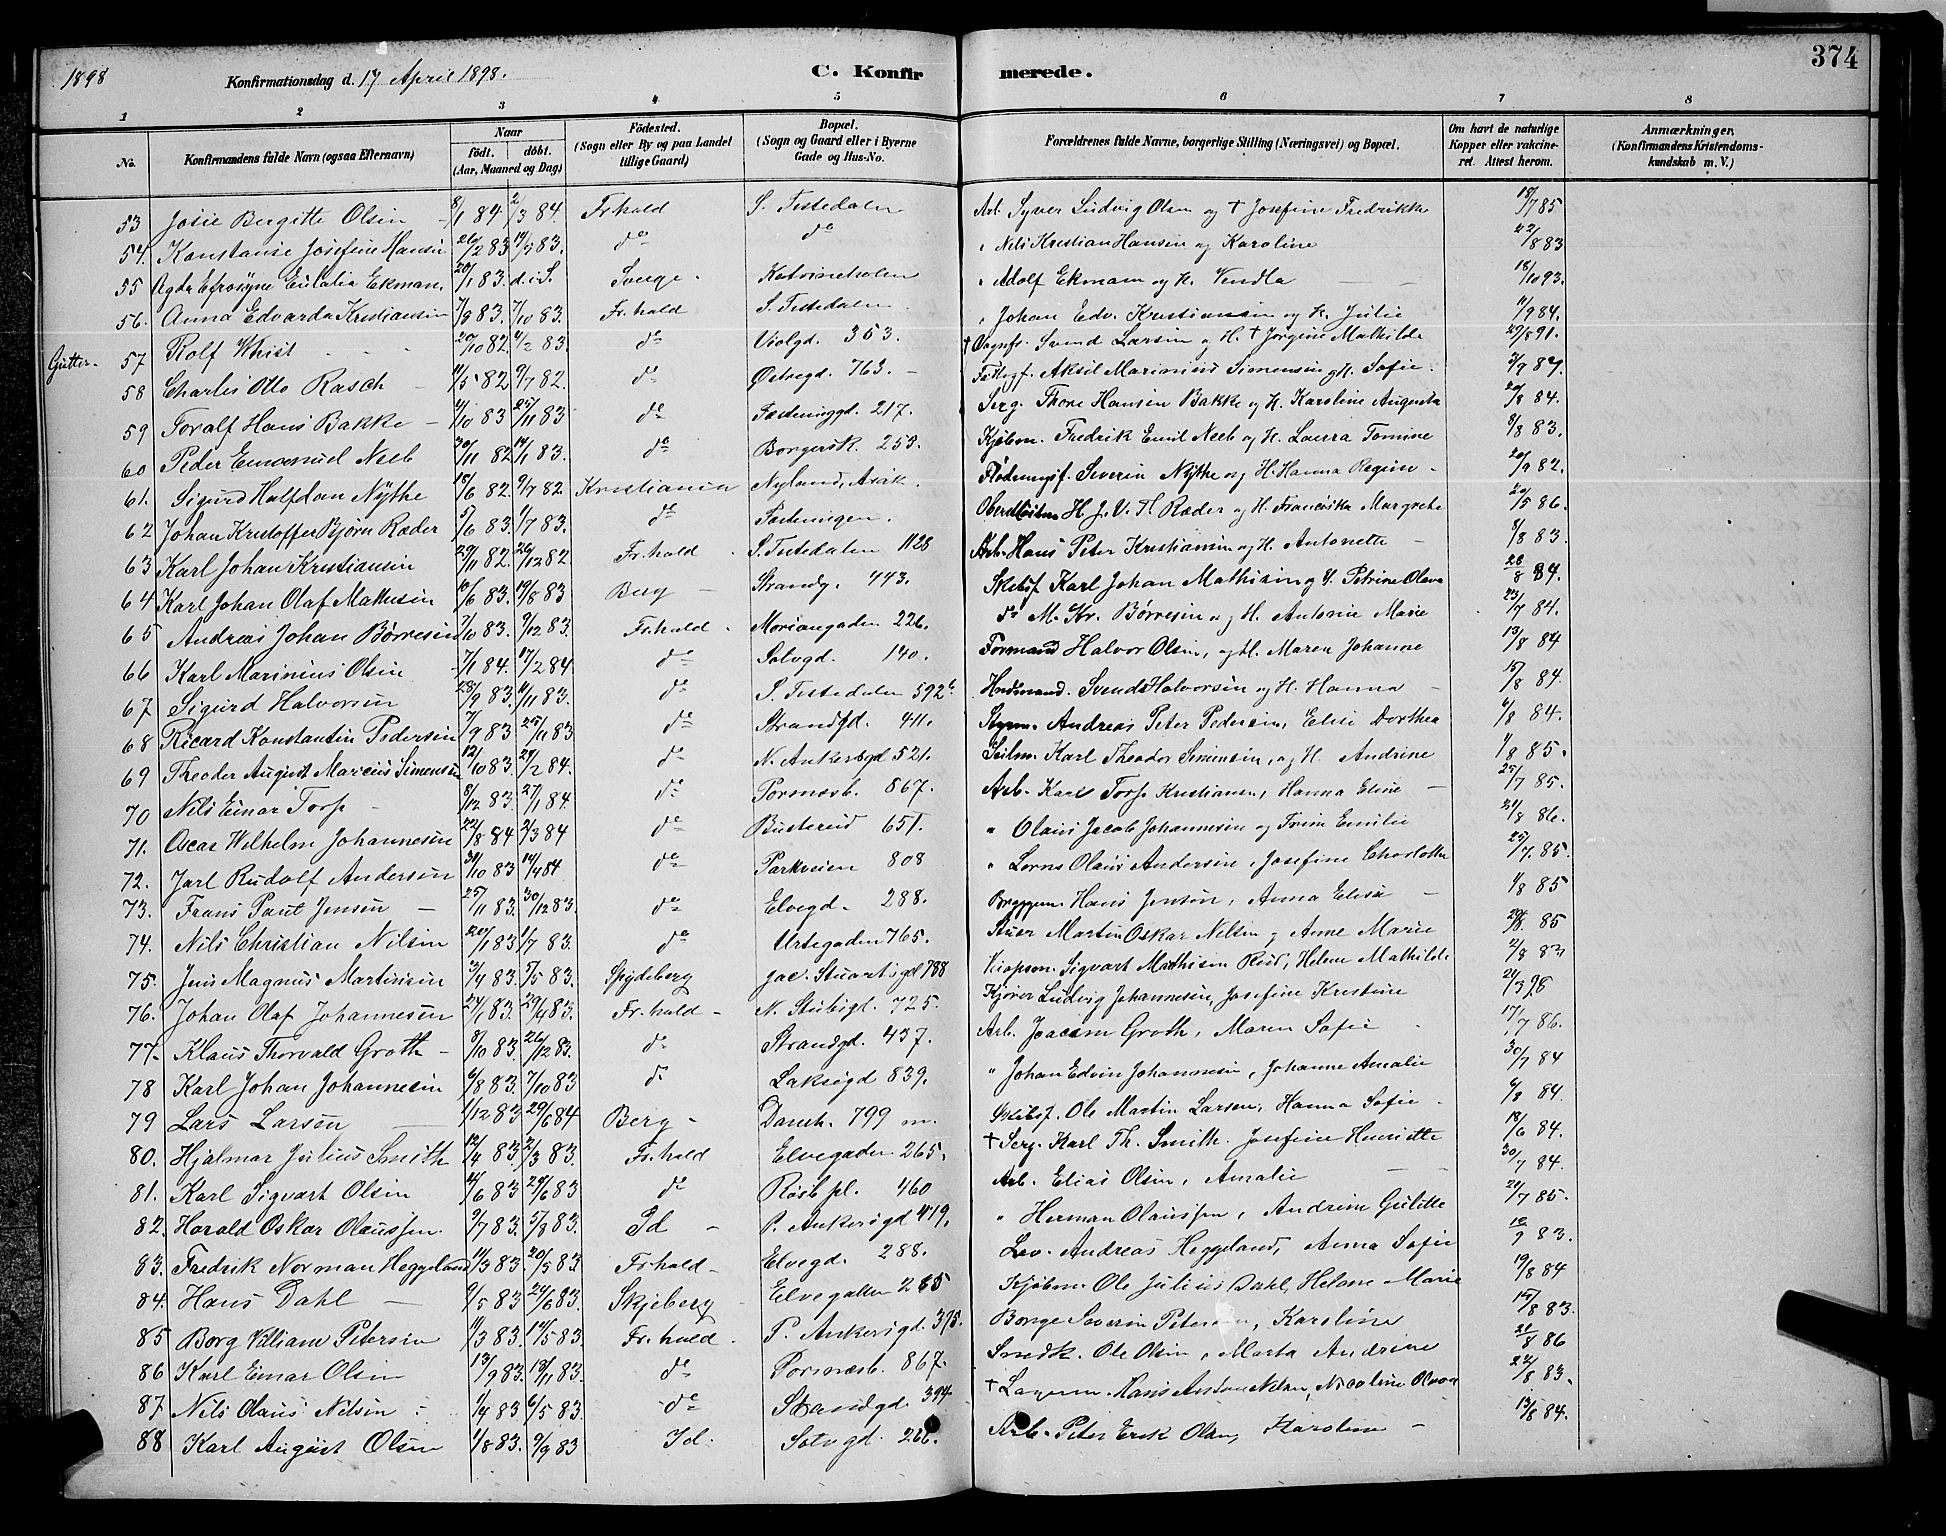 374
1898 Konfirmationsdag d. 17 April 1898. C. Konfirmerede.
1 2 3 4 5 6 7 8
No. Konfirmandens fulde Navn (ogsaa Efternavn) Naar födt. döbt. (Aar, Maaned og Dag) Födested. (Sogn eller By og paa Landet tillige Gaard) Bopæl. (Sogn og Gaard eller i Byerne Gade og Hus-No. Forældrenes fulde Navne, borgerlige Stilling (Næringsvei) og Bopæl. Om havt de naturlige Kopper eller vakcineret. Attest herom. Anmærkninger, (Konfirmandens Kristendomskundskab m. V.)
53 Josie Bergitte Olsen 8/1 84. 2/3 84. Fr.hald S. Tistedalen Arb. Syver Ludvig Olsen og † Josefine Fredrikke 18/7 85
54. Konstanse Josefine Hansen 26/2 83 83. do do " Nils Kristian Hansen og Karoline 22/8 83
55 Agda Efrosyne Eulalia Ekman. 20/1 83. d.i S. Sverge Katrineholm " Adolf Ekman og H. Vendla 18/10 93.
56. Anna Edvarda Kristiansen 7/9 83. 7/10 83. Fr.hald S. Tistedalen " Johan Edv. Kristiansen og H. Julie 11/9 84.
Gutter. 57 Rolf Whist 20/10 82. 4/2 83. do Violgd. 353. † Svend Larsen og H. † Jörgine Mathilde 29/8 91.
58 Charles Otto Rasch 11/5 82 9/7 82. do Østregd. 763. Aksel Marinius Simensen og H. Sofie
59 Toralf Hans Bakke 11/10 83 25/11 83 do Fæstninggd. 217. Serg. Thore Hansen Bakke og H. Karoline Augusta 20/8 84.
60 Peder Emanuel Neeb 30/11 82 14/1 83. do Borgersk. 253. Kjøbm. Fredrik Emil Neeb og H. Laura Tomine 9/8 83.
61. Sigurd Halfdan Nythe 18/6 82. 9/7 82 Kristiania Nyland, Asak. Flødningsf. Severin Nythe og H. Hanna Regine 20/9 82.
62 Johan Kristoffer Bjørn Ræder 5/6 83. 1/7 83. do Fæstningen. H. J. V. Th. Ræder og H. Fransiska Margrete 20/5 86.
63 Karl Johan Kristiansen 29/11 82. 26/12 82 Fr.hald S. Tistedalen 1128 Arb. Hans Peter Kristiansen og H. Antonette 8/8 83.
64 Karl Johan Olaf Mathisen 10/6 83. 19/8 83 Berg Strandg. 443. Skibsf. Karl Johan Mathisen og H. Petrine Olava 28/8 84.
65 Andreas Johan Børresen 7/10 83. 9/12 83. Fr.hald Moriangaden 226. do M. Kr. Børresen og H. Antonie Marie 23/7 84.
66 Karl Marinius Olsen 7/1 84. 17/2 84 do Solvgd. 140. Formand Halvor Olsen, og H. Maren Johanne 13/8 84
67 Sigurd Halvorsen 23/9 83. 11/11 83. do S. Tistedalen 592 b Svend Halvorsen og H. Hanna 15/8 84.
68 Ricard Konstantin Pedersen 7/9 83 25/11 83 do Strandgd. 411. Styrm. Andreas Peter Pedersen, Elise Dorthea 6/8 84.
69 Theoder August Marcus Simensen 12/10 83. 24/2 84. do N. Ankersgd 521. Seilm. Karl Theodor Simensen, og H. Andrine 1/8 85.
70 Nils Einar Torp 8/12 83. 27/1 84. do Porsnæsb. 867. Arb. Karl Torp Kristiansen, Hanna Eline 25/7 85.
71. Oscar Wilhelm Johannesen 22/8 84 2/3 84 do Busterud 651. " Olaus Jacob Johannesen og Trine Emilie 21/8 86.
72. Jarl Rudolf Andersen 31/10 83 14/4 84 do Parkveien 808 " Lorns Olaus Andersen, Josefine Charlotte 25/7 85.
73. Frans Paul Jensen 25/11 83. 30/12 83. do Elvegd. 288. Bryggem. Hans Jensen, Anna Elise 1/8 85
74. Nils Christian Nilsen 20/1 83 1/7 83. do Urtegaden 765. Martin Oskar Nilsen, Anne Marie 85
75. Jens Magnus Martinsen 3/4 83. 5/5 83. Spydeberg Jac. Stuartsgd 788 Sigvart Mathisen Rud, Helene Mathilde 2/8 83
76. Johan Olaf Johannesen 24/1 83. 29/4 83. Fr.hald N. Stubsgd. 725. Kjører Ludvig Johannesen, Josefine Kristine 21/3 98
77. Klaus Thorvald Groth 8/10 83. 26/12 83. do Strandgd. 437. Arb. Joacim Groth, Maren Sofie 17/7 86.
78 Karl Johan Johannesen 6/8 83. 7/10 83 do Laksegd 839. " Johan Edvin Johannesen, Johanne Amalie 30/7 84
79 Lars Larsen 1/12 83 29/6 84 Berg Damh. 799 m. Skibsf. Ole Martin Larsen, Hanna Sofie 6/8 84.
80. Hjalmar Julius Smith 12/4 83. 2/3 83. Fr.hald Elvegaden 265. † Serg. Karl Th. Smith. Josefine Henriette 18/6 84.
81. Karl Sigvart Olsen 11/6 83 24/6 83 do Røsb pl. 460 Arb. Elias Olsen, Amalie 30/7 84.
82. Harald Oskar Olaussen 9/7 83. 5/8 83. Id P. Ankersgd 419. " Herman Olaussen, Andrine Gulitte 24/7 85.
83. Fredrik Norman Heggeland 11/3 83. 20/5 83 Fr.hald Elvegd. 288. Andreas Heggeland, Anna Sofie 12/9 83.
84. Hans Dahl 9/5 83 24/6 83. Skjeberg Elvegaden 265 Kjøbm. Ole Julius Dahl, Helene Marie 19/8 84
85 Borg Villiam Petersen 11/3 83. 14/5 83 Fr.hald P. Ankersgd. 375. Borge Severin Petersen, Karoline 15/8 83.
86 Karl Einar Olsen 13/9 83. 18/11 83. do Porsnæsb. 867. Smedk. Ole Olsen, Marta Andrine 21/8 86
87. Nils Olaus Nilsen 1/4 83 6/5 83. do Strandgd. 394 † Hans Anton Nilsen, Nicoline Olava 24/8 83.
88 Karl August Olsen 1/8 83. 9/9 83 Id. Solvgd. Arb. Peter Erik Olsen, Karoline 13/8 84.